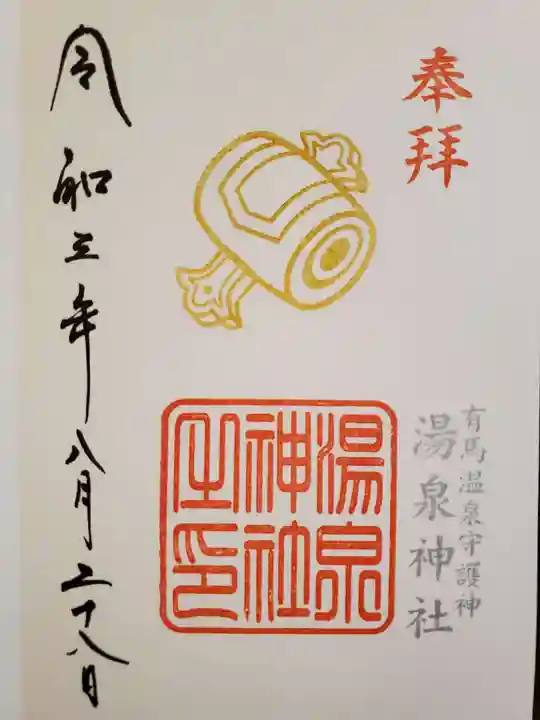 奉拝
有馬温泉守護神
湯泉神社
湯泉
神社
之印
令和三年八月二十八日